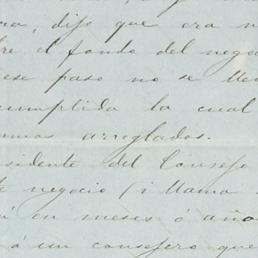 dijo que era
el fondo del nego
ese paso no se lle
cumplida la cual
arreglados.
sidente del Consejo
negocio (i llama
en meses ó año
ó un consejero que